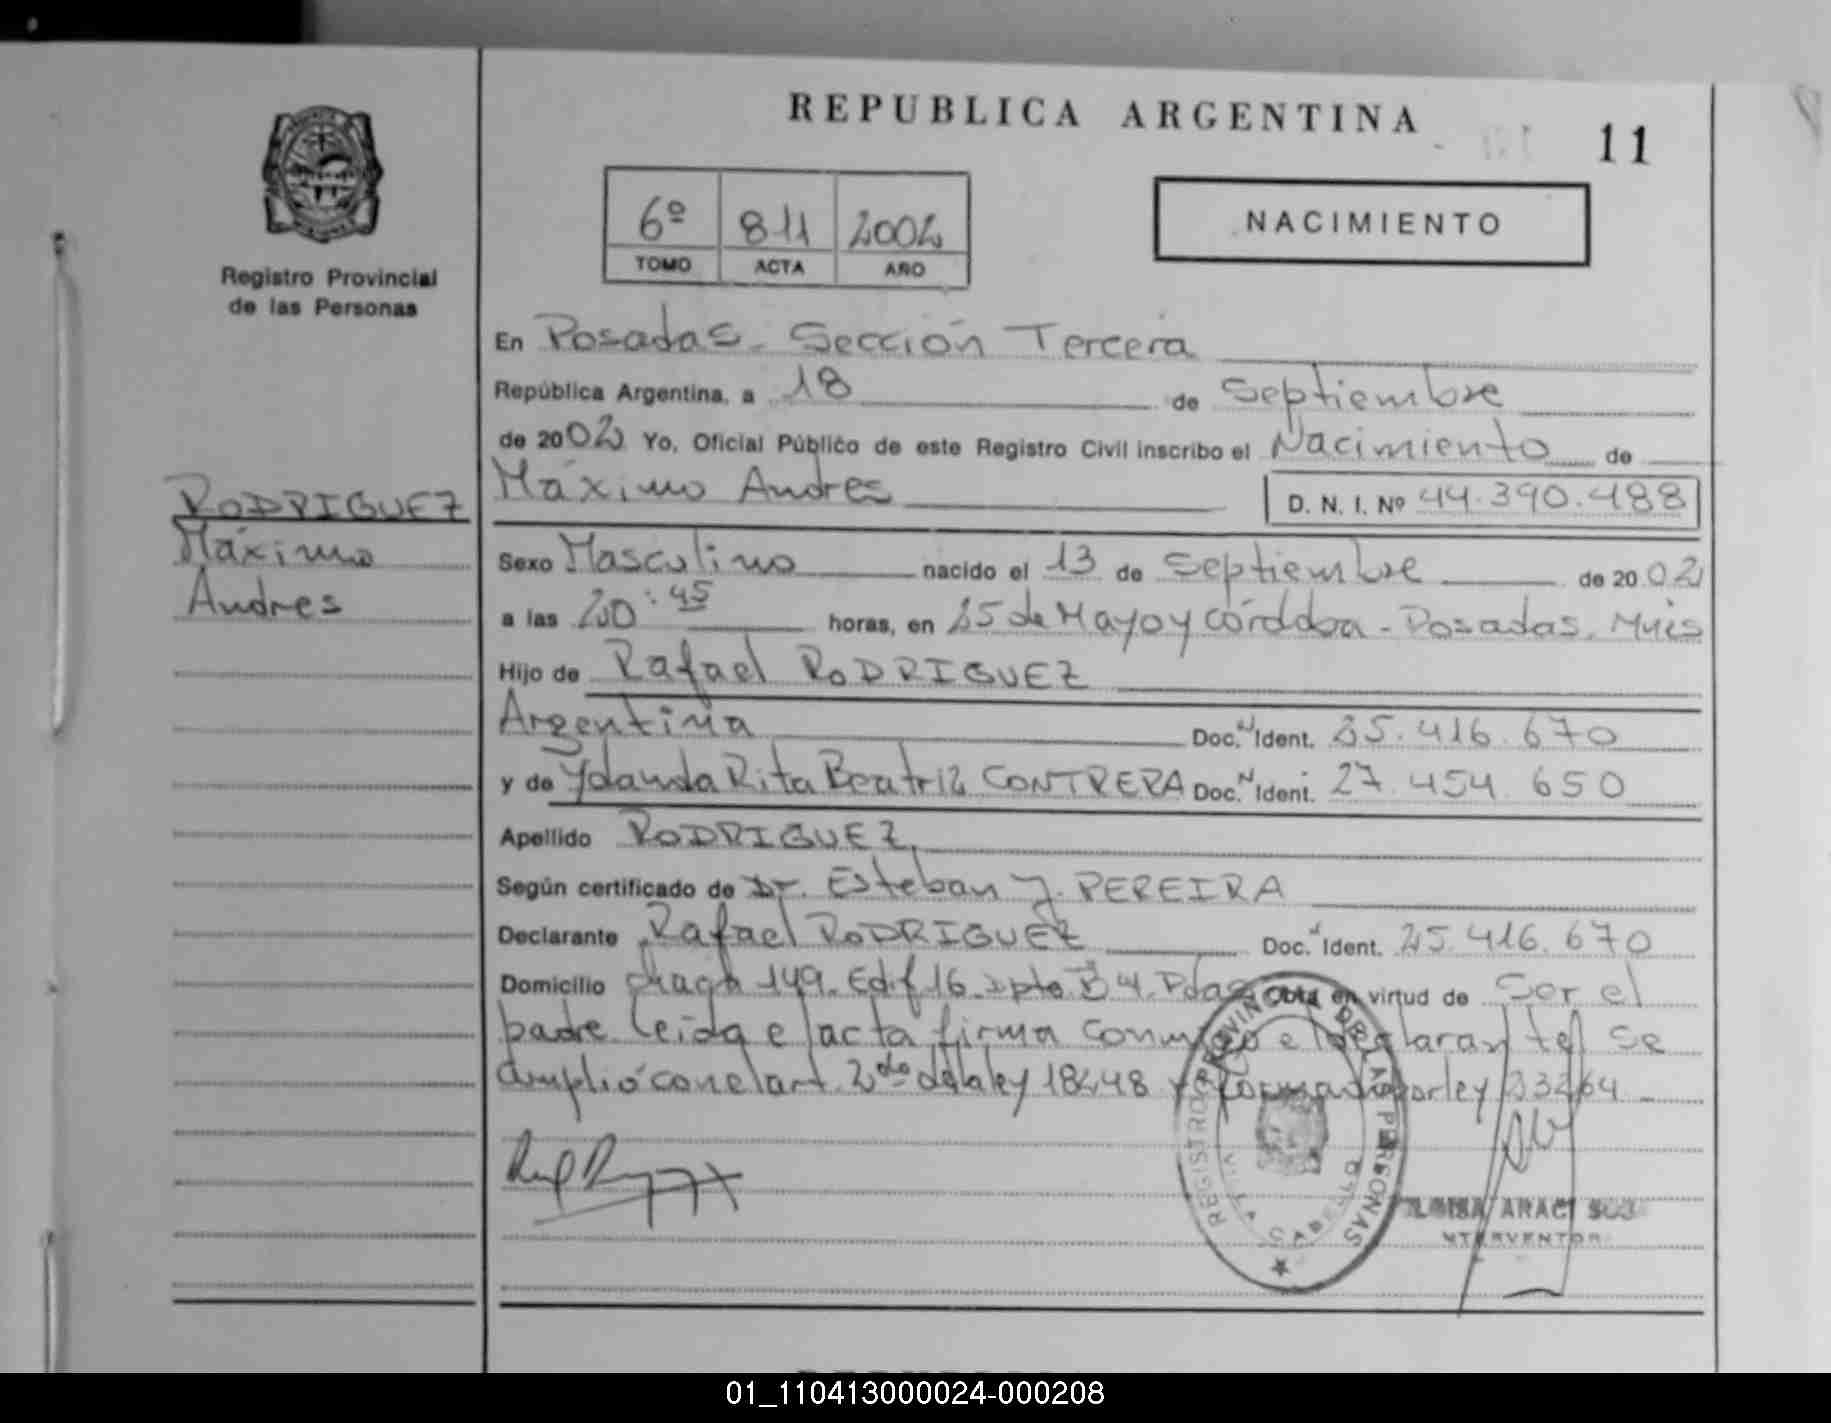 REPUBLICA ARGENTINA
11
6º 811 2002
TOMO ACTA AÑO
NACIMIENTO
Registro Provincial
de las Personas
RODRIGUEZ
Máximo
Andres
En Posadas - Sección Tercera
República Argentina, a 18 de Septiembre
de 2002 Yo, Oficial Público de este Registro Civil inscribo el Nacimiento de
Máximo Andres D. N. I. Nº 44.390.488
Sexo Masculino nacido el 13 de Septiembre de 2002
a las 20:45 horas, en 25 de Mayo y Córdoba - Posadas.
Hijo de Rafael RODRIGUEZ
Argentina Doc. N Ident. 25.416.670
y de Yolanda Rita Beatriz CONTRERA Doc. N Ident. 27.454.650
Apellido RODRIGUEZ
Según certificado de Dr. Esteban J. PEREIRA
Declarante Rafael RODRIGUEZ Doc. N Ident. 25.416.670
Domicilio 149. Edif 16 Dpto Obra en virtud de Ser el
padre Leida e lacta firma conmigo e l declarante/ Se
amplió con el art. 2do de la ley 18248 por ley 23264
REGISTRO PROVINCIAL DE LAS PERSONAS
VILLA CABELLO
ARACI
INTERVENTOR
01_110413000024-000208